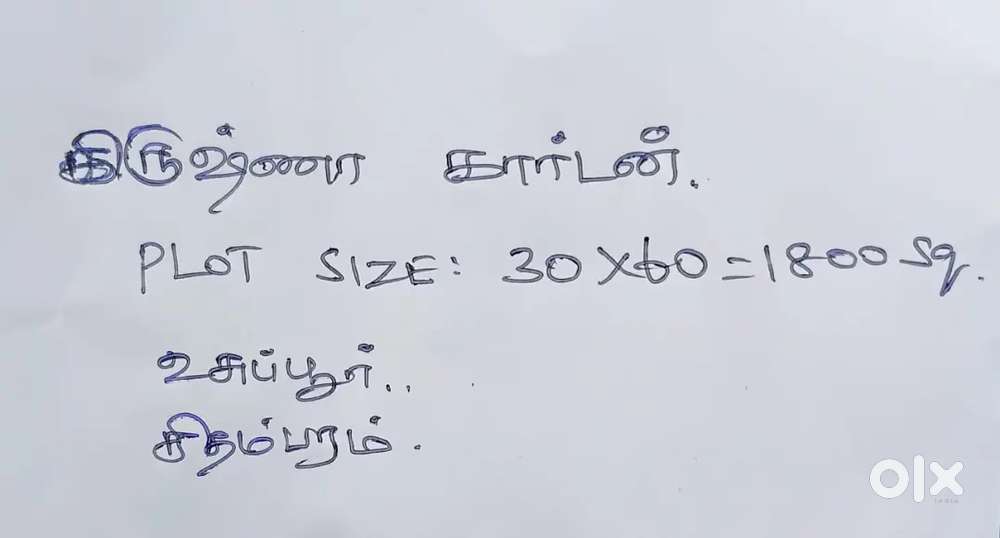 கிருஷ்ணா கார்டன்.
PLOT SIZE: 30X60=1800 Sq.
உசுப்பூர்..
சிதம்பரம்.
olx
INDIA